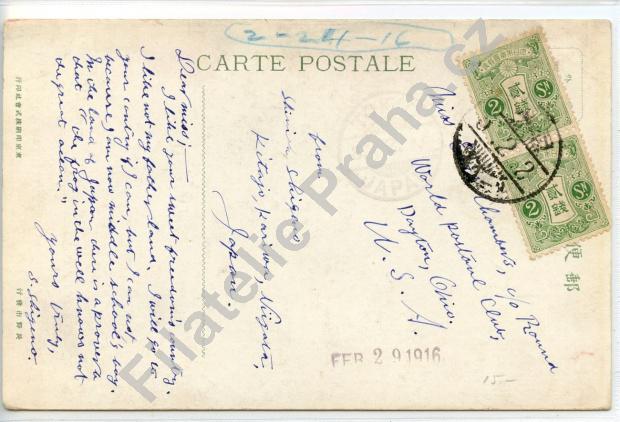 2-24-16
CARTE POSTALE
Dear miss:—
I like your sweet freedom's country.
I like not my fatherland. I will go to
your country if I can, but I can not,
because I am now middle school's boy.
In the land of Japan there is a proverb
that "the frog in the well knows not
the great ocean."
Yours truly,
S. Shigno.
from
Kitajo, Kariwa, Niigata,
Japan.
Miss Chambers, c/o Round
World postcard Club,
Dayton, Ohio.
U. S. A.
FEB 29 1916.
15.-
JAPAN
2
2
郵
便
Filatelie Praha.cz